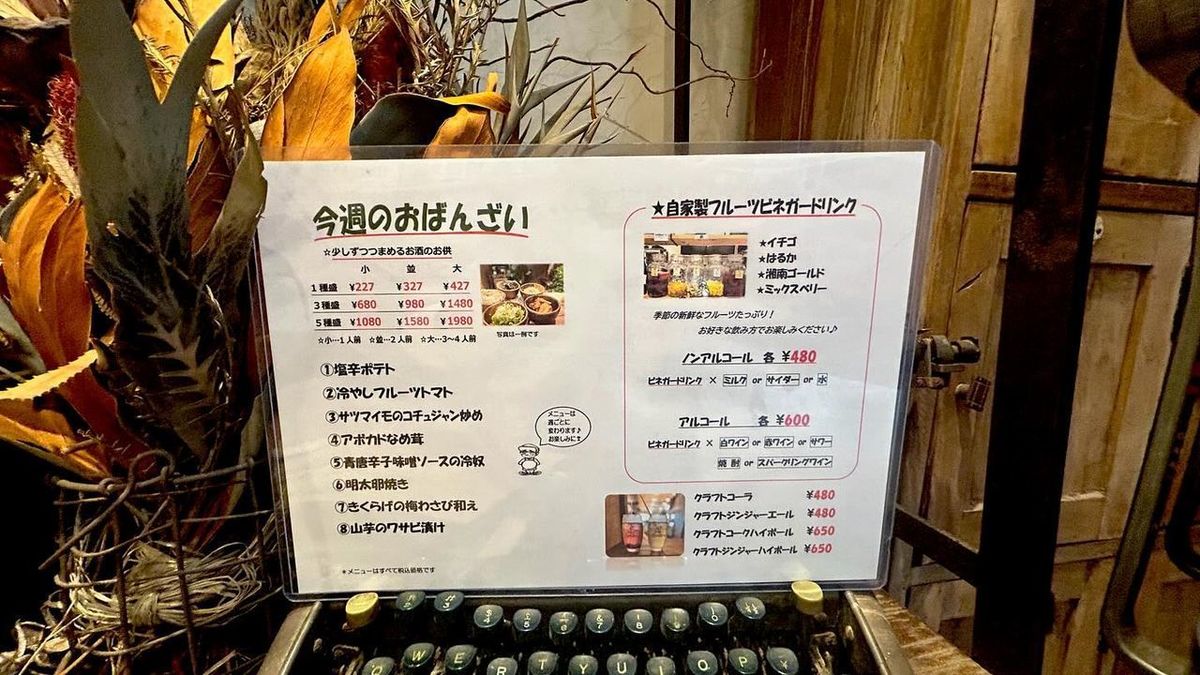 今週のおばんざい
☆少しずつつまめるお酒のお供
小 並 大
1種盛 ¥227 ¥327 ¥427
3種盛 ¥680 ¥980 ¥1480
5種盛 ¥1080 ¥1580 ¥1980
☆小…1人前 ☆並…2人前 ☆大…3~4人前
写真は一例です
①塩辛ポテト
②冷やしフルーツトマト
③サツマイモのコチュジャン炒め
④アボカドなめ茸
⑤青唐辛子味噌ソースの冷奴
⑥明太卵焼き
⑦きくらげの梅わさび和え
⑧山芋のワサビ漬け
メニューは
週ごとに
変わります♪
お楽しみに!
*メニューはすべて税込価格です
★自家製フルーツビネガードリンク
★イチゴ
★はるか
★湘南ゴールド
★ミックスベリー
季節の新鮮なフルーツたっぷり!
お好きな飲み方でお楽しみください♪
ノンアルコール 各 ¥480
ビネガードリンク × ミルク or サイダー or 水
アルコール 各 ¥600
ビネガードリンク × 白ワイン or 赤ワイン or サワー
焼酎 or スパークリングワイン
クラフトコーラ ¥480
クラフトジンジャーエール ¥480
クラフトコークハイボール ¥650
クラフトジンジャーハイボール ¥650
Q W E R T Y U I O P